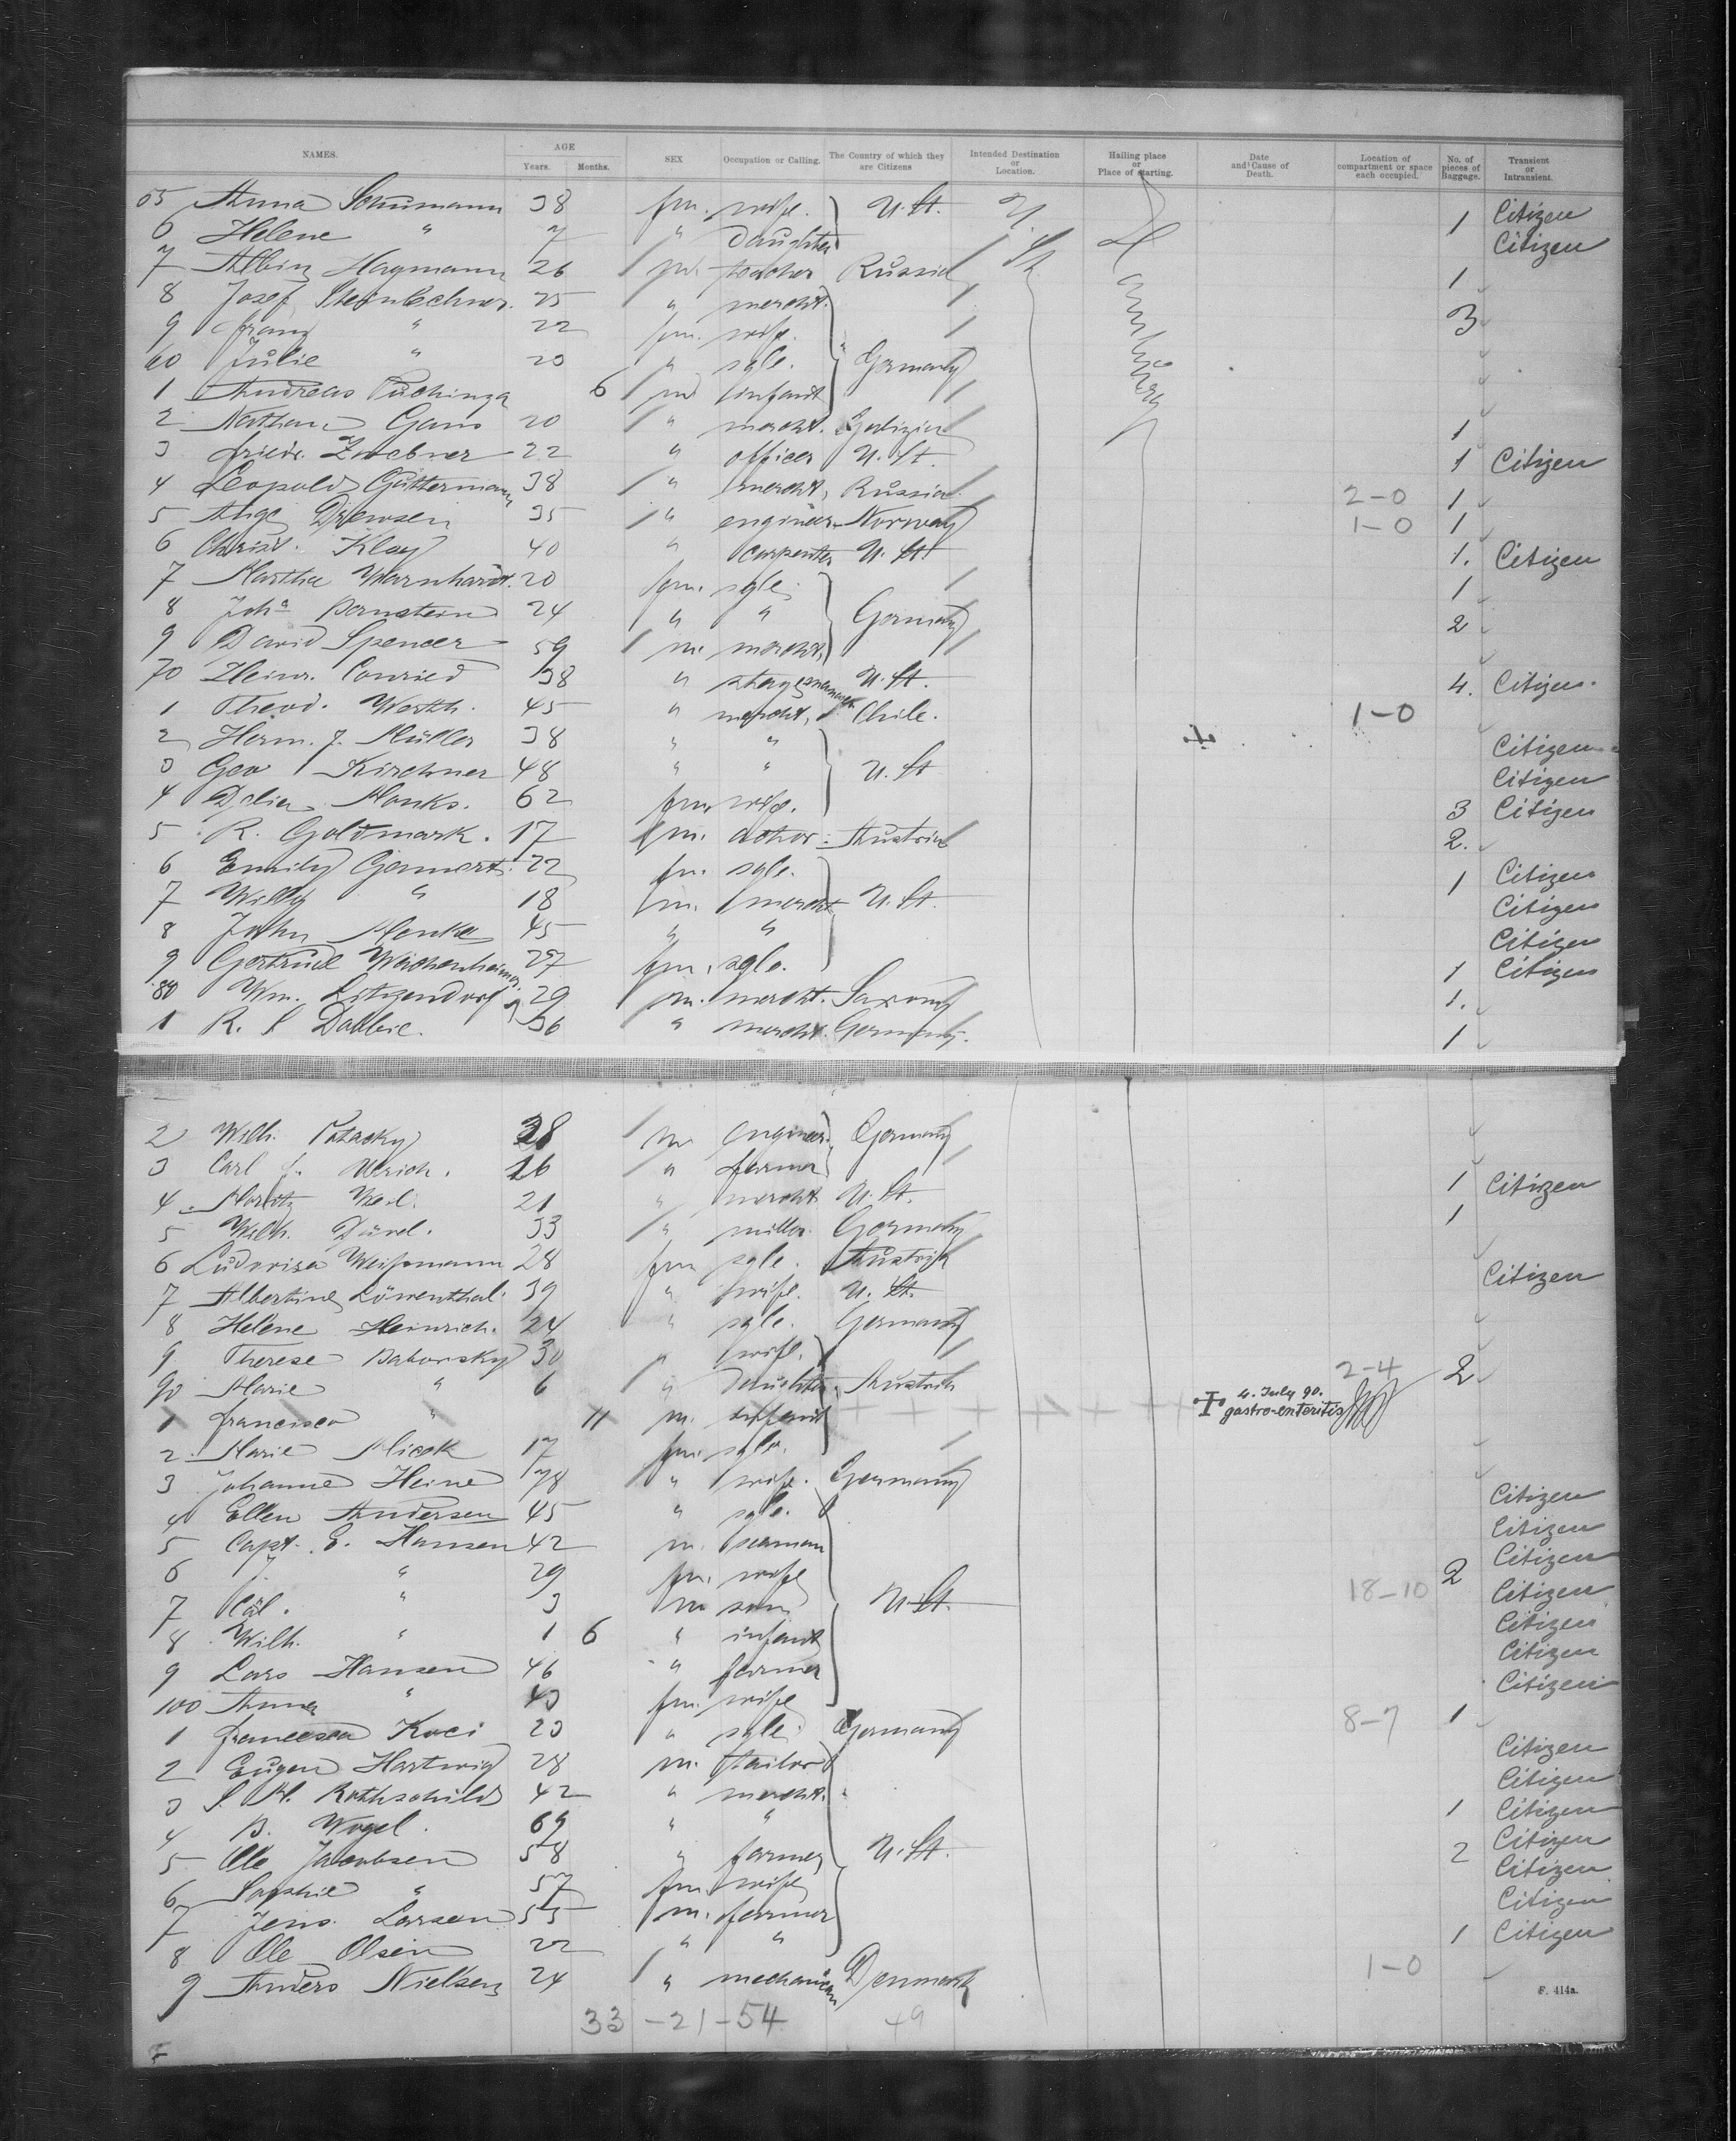 NAMES. AGE Years. Months. SEX Occupation or Calling. The Country of which they are Citizens Intended Destination or Location. Hailing place or Place of starting. Date and Cause of Death. Location of compartment or space each occupied. No. of pieces of Baggage. Transient or Intransient.
55 Anna Schumann 38 fm. wife. U. St. 1 Citizen
6 Helene " 7 " daughter Citizen
7 Albin Haymann 26 m. teacher Russia 1
8 Josef 25 " mercht. 3
9 Franz " 22 fm. wife.
60 Julie " 20 " sgle. Germany
1 Andreas Puchinga 6 m infant
2 Nathan Gans 20 " mercht. Galizien 1
3 Friedr. 22 " officer U. St. 1 Citizen
4 Leopold Guttermann 38 " mercht, Russia. 2-0 1
5 Aage Drewsen 35 " engineer Norway 1-0 1
6 Christ. Klay 40 " carpenter U. St 1. Citizen
7 Martha Warnhardt. 20 fm. sgle. 1
8 Joha Bernstein 24 " " Germany 2
9 David Spencer 59 m. mercht,
70 Heinr. Conried 38 " stage manager U. St. 4. Citizen.
1 Theod. Werth. 45 " mercht, Chile. 1-0
2 Herm. J. Müller 38 " " Citizen
3 Geo Kirchner 48 " " U. St Citizen
4 Delia Monks. 62 fm. wife. 3 Citizen
5 R. Goldmark. 17 m. actor Austria 2.
6 Emily Gannert. 22 fm. sgle. 1 Citizen
7 Willy " 18 m. mercht U. St. Citizen
8 John Monke 45 " " Citizen
9 Gertrud Wachenheimer. 27 fm. sgle. 1 Citizen
80 Wm. Litzendorf 29 m. mercht. Saxony 1.
1 R. S 36 " mercht. Germany. 1
2 Wilh. Patacky 28 m engineer. Germany
3 Carl F. Ulrich. 26 " farmer 1 Citizen
4 Moritz Weil. 21 " mercht U. St. 1
5 Wilh. Dürel. 33 " miller. Germany
6 Ludovisa Weissmann 28 fm sgle. Austria
7 Albertine Löwenthal. 39 " wife. U. St. Citizen
8 Helene Heinrich. 24 " sgle. Germany
9 Therese Baborsky 30 " wife.
90 Marie " 6 " daughter Austria 2-4 2
1 Francisca " 11 m. infant 4. July 90. gastro-enteritis
2 Marie Micek 17 fm. sgle.
3 Johanne Heine 78 " wife. Germany
4 Ellen Andersen 45 " sgle. Citizen
5 Capt. E. Hansen 42 m. seaman Citizen
6 J. " 29 fm. wife 2 Citizen
7 Cal. " 3 m son U. St. 18-10 Citizen
8 Wilh. " 1 6 " infant Citizen
9 Lars Hansen 46 " farmer Citizen
100 Anna " 43 fm. wife Citizen
1 Francesca Koci 23 " sgle. Germany 8-7 1
2 Eugen Hartwig 28 m. tailor Citizen
3 S. M. Rothschild 42 " mercht. Citizen
4 B. Vogel. 69 " " 1 Citizen
5 Ole Jacobsen 58 " farmer U. St. 2 Citizen
6 Sophie " 57 fm. wife Citizen
7 Jens. Larsen 55 m. farmer Citizen
8 Ole Olsen 22 " " 1 Citizen
9 Anders Nielsen 24 " mechanican Denmark 1-0
33 - 21 - 54 49
F. 414a.
U. St. Hamburg